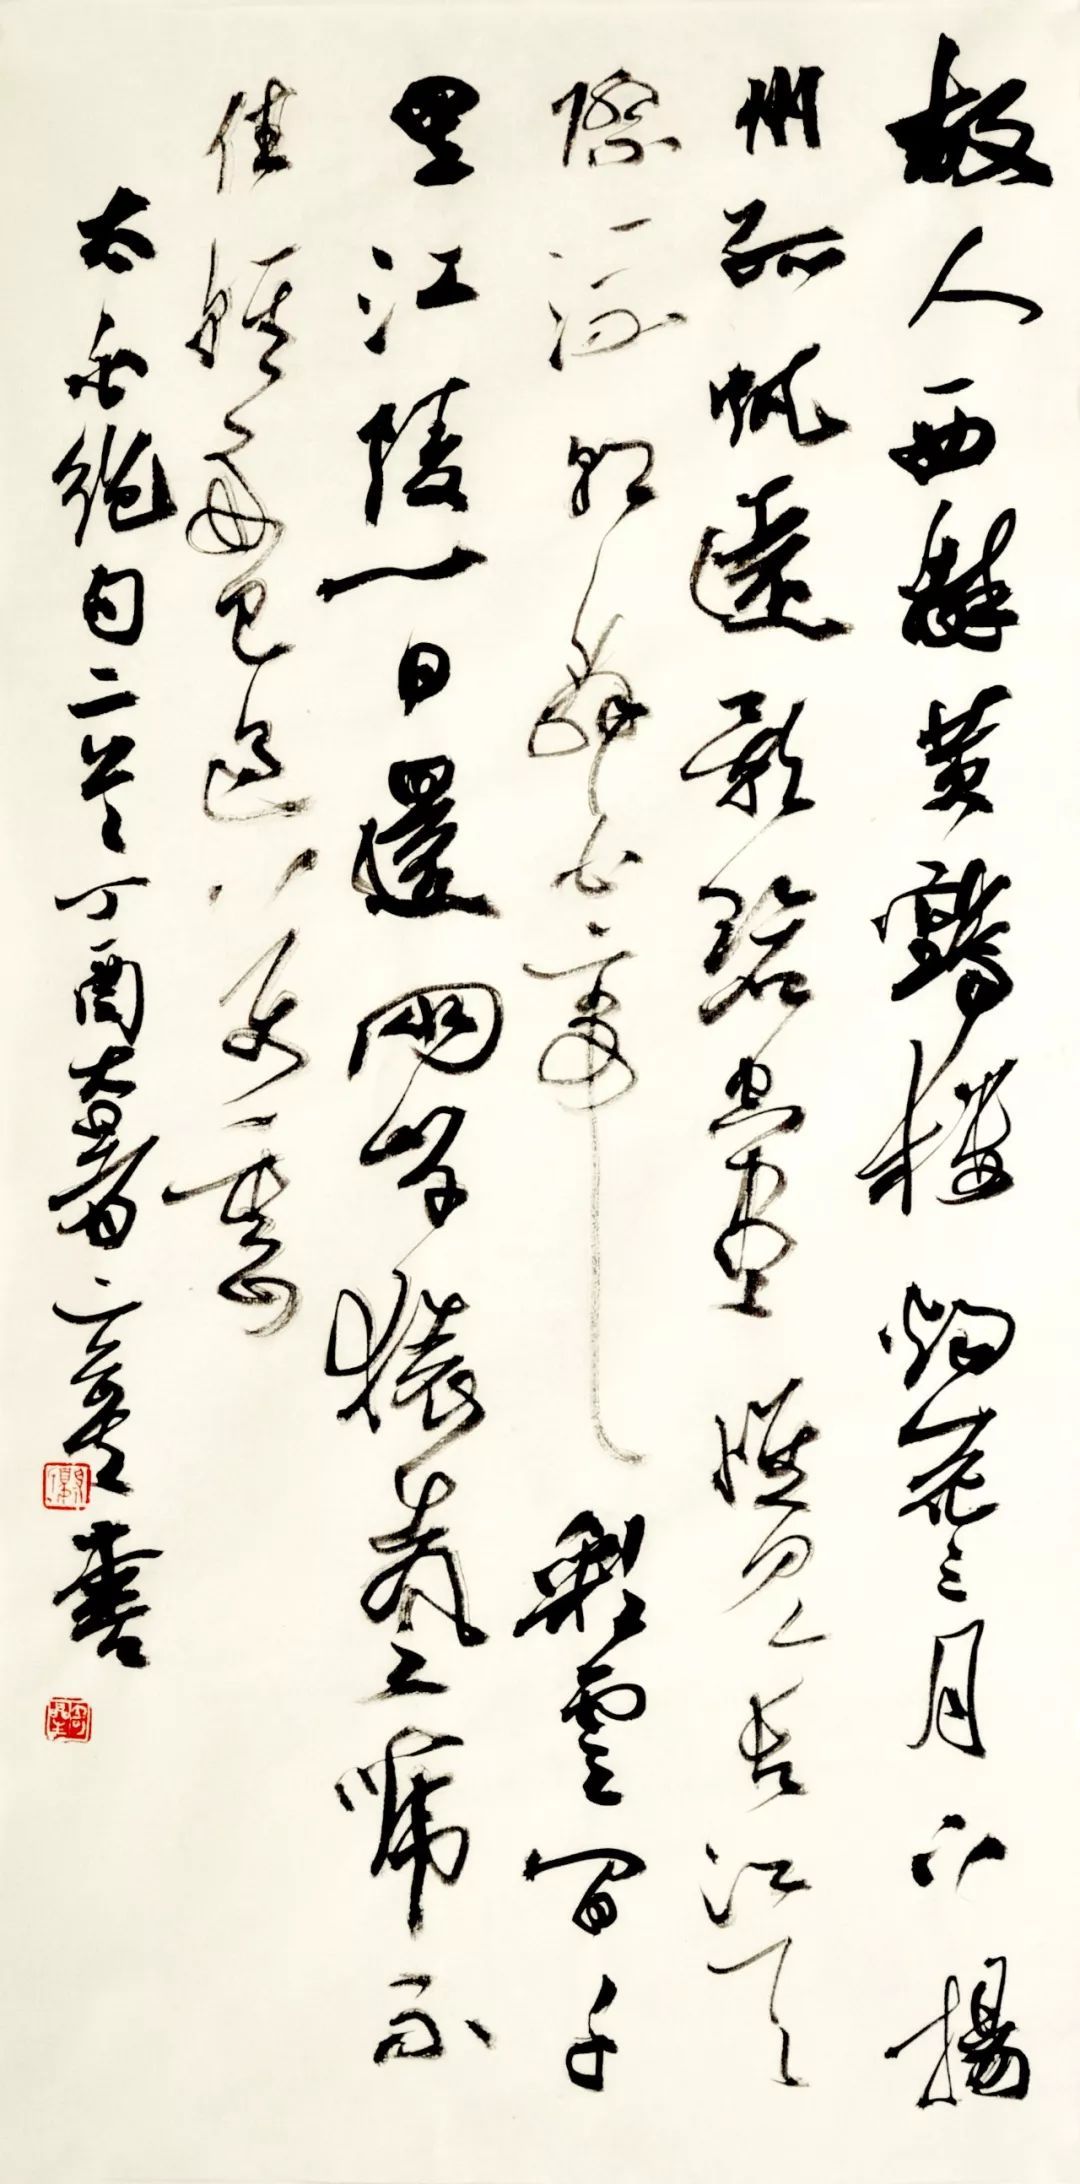 故人西辭黃鶴樓烟花三月下揚
州孤帆遠影碧空盡惟見長江天
際流朝辭白帝彩雲間千
里江陵一日還兩岸猿聲啼不
住輕舟已過萬重山
太白絕句二首丁酉大暑書